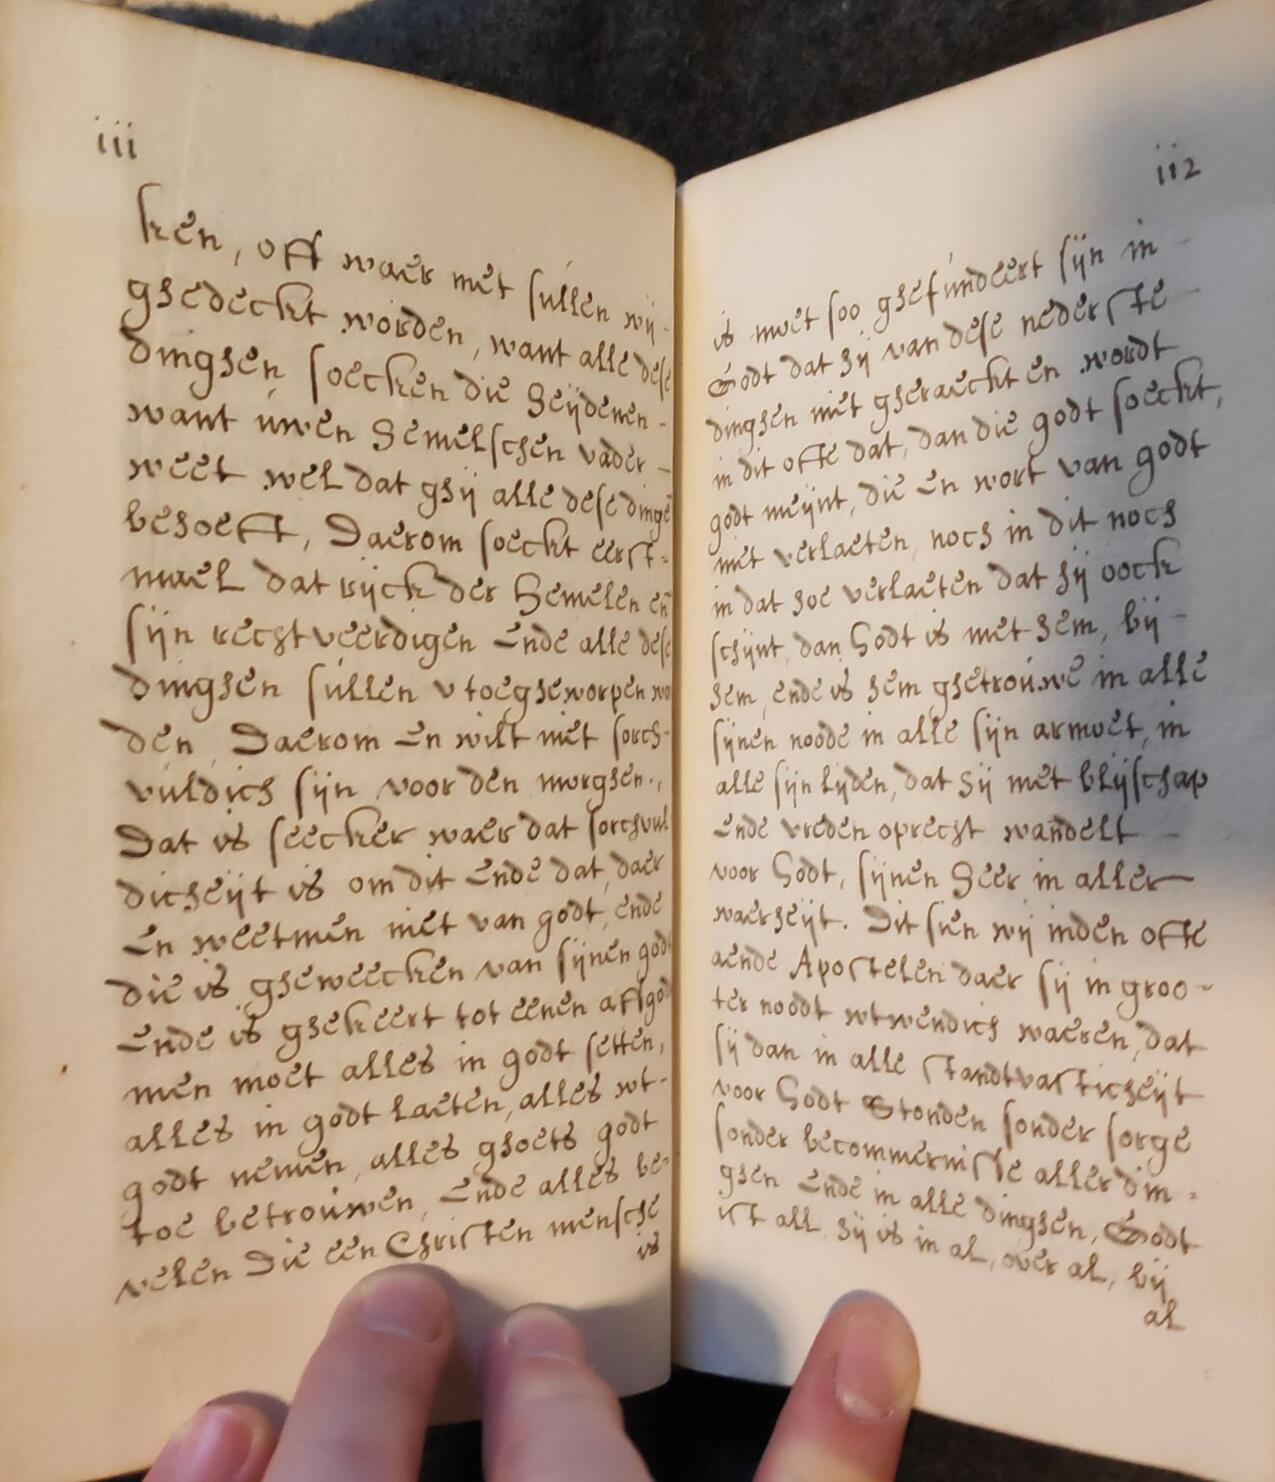 iii
ken, off waer met súllen wij-
ghedeckt worden, want alle dese
dinghen soecken die heijdenen-
want úwen hemelschen vader-
weet wel dat ghij alle dese dingē
behoefft, Daerom soeckt eerst-
mael dat rijck der hemelen en̄
sijn rechtveerdigen Ende alle dese
dinghen súllen v toegheworpen wo
den, Daerom En wilt niet sorch-
vúldich sijn voor den morghen.,
Dat is seecker waer dat sorchvul
dicheijt is om dit Ende dat, daer
En weetmen niet van godt, ende
die is gheweecken van sijnen godt
Ende is ghekeert tot eenen affgod
men moet alles in godt setten,
alles in godt laeten, alles wt-
godt nemen, alles ghoets godt
toe betroúwen, Ende alles be-
velen Die een Christen mensche
is
ii2
is moet soo ghefúndeert sijn in-
Godt dat hij van dese nederste-
dinghen niet gheraeckt en wordt
in dit ofte dat, dan die godt soeckt,
godt meijnt, die En wort van godt
niet verlaeten, noch in dit noch
in dat hoe verlaeten dat hij oock
schijnt, dan Godt is met hem, bij-
hem, ende is hem ghetroúwe in alle
sijnen noode in alle sijn armoet, in
alle sijn lijden, dat hij met blijschap
Ende vreden oprecht wandelt-
voor Godt, sijnen heer in aller
waerheijt. Dit sien wij inden ofte
aende Apostelen daer sij in groo-
ter noodt wtwendich waeren, dat
sij dan in alle standtvasticheijt
voor Godt Stonden sonder sorge
sonder becommernisse aller din-
ghen Ende in alle dinghen, Godt
ist all hij is in al, over al, bij
al